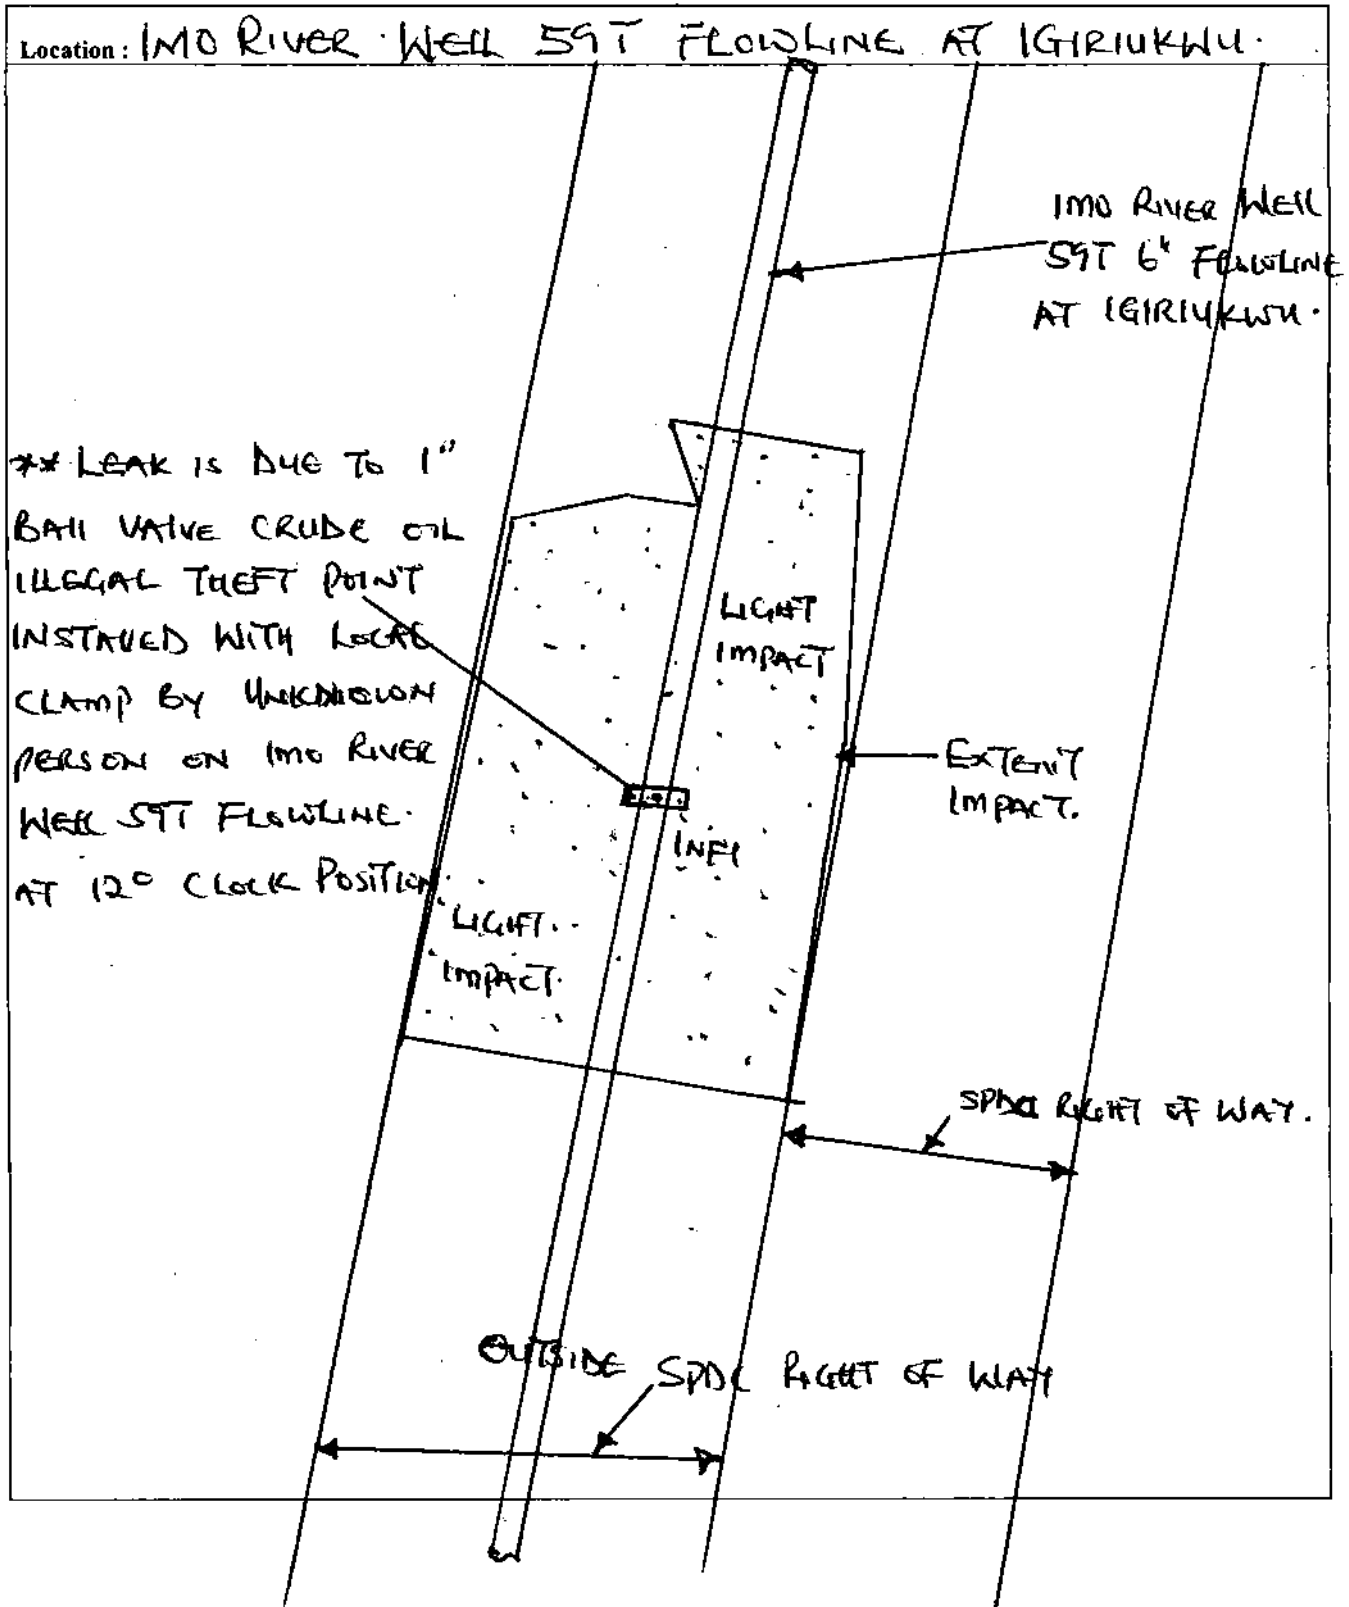 Location : IMO RIVER WELL 59T FLOWLINE AT IGIRIUKWU.
IMO RIVER WELL
59T 6" FLOWLINE
AT IGIRIUKWU.
** LEAK IS DUE TO 1"
BALL VALVE CRUDE OIL
ILLEGAL THEFT POINT
INSTALLED WITH LOCAL
CLAMP BY UNKNOWN
PERSON ON IMO RIVER
WELL 59T FLOWLINE.
AT 12O CLOCK POSITION
LIGHT
IMPACT
EXTENT
IMPACT.
LIGHT.
IMPACT.
SPDC RIGHT OF WAY.
OUTSIDE SPDC RIGHT OF WAY